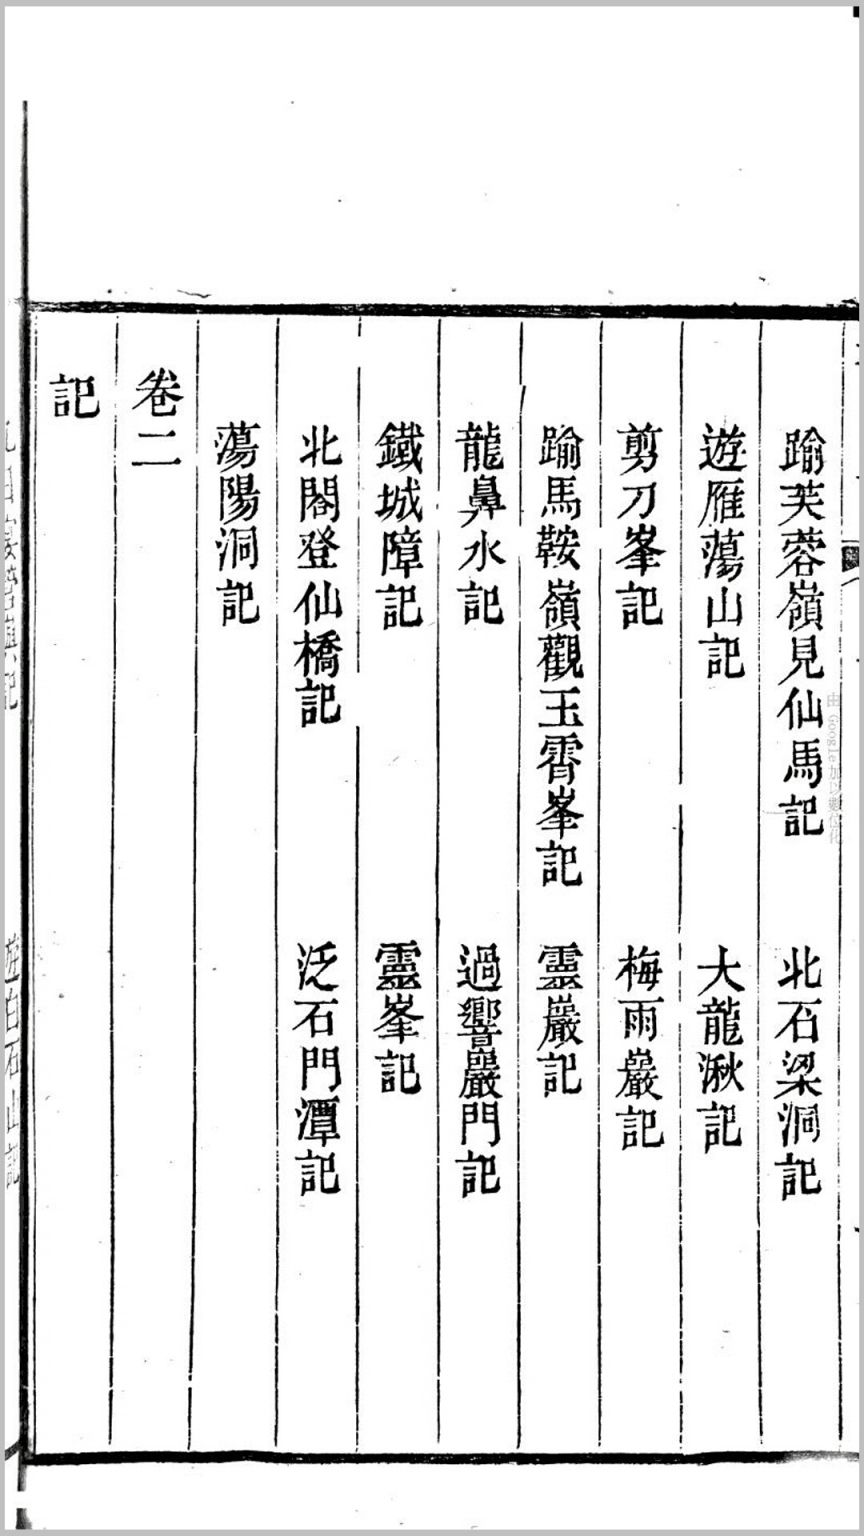 踰芙蓉嶺見仙馬記　北石梁洞記
遊雁蕩山記　大龍湫記
剪刀峯記　梅雨巖記
踰馬鞍嶺觀玉霄峯記　靈巖記
龍鼻水記　過響巖門記
鐵城障記　靈峯記
北閣登仙橋記　泛石門潭記
蕩陽洞記
卷二
記
由 Google 加以數位化
遊白石山記